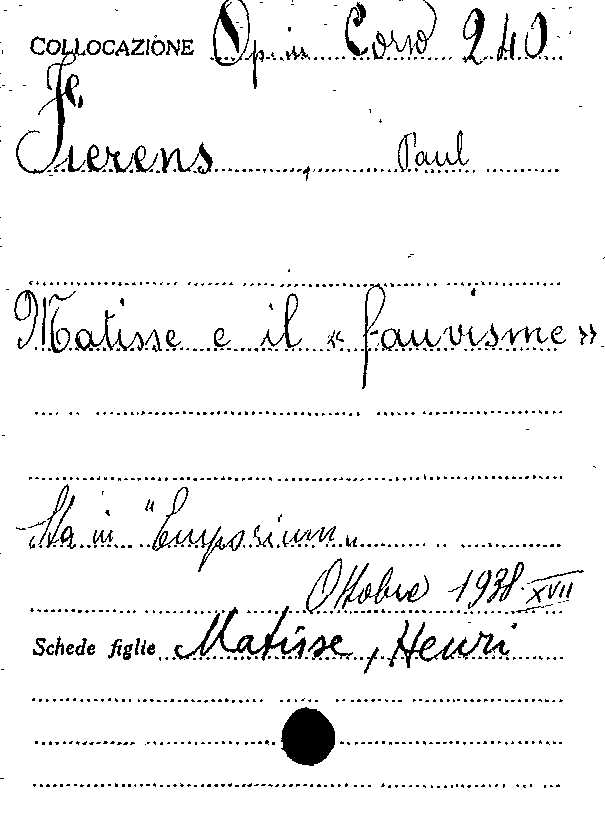 COLLOCAZIONE Op. in Corso 240
Fierens, Paul
Matisse e il « fauvisme »
Sta in "Emporium„
Ottobre 1938 XVII
Schede figlie Matisse, Henri